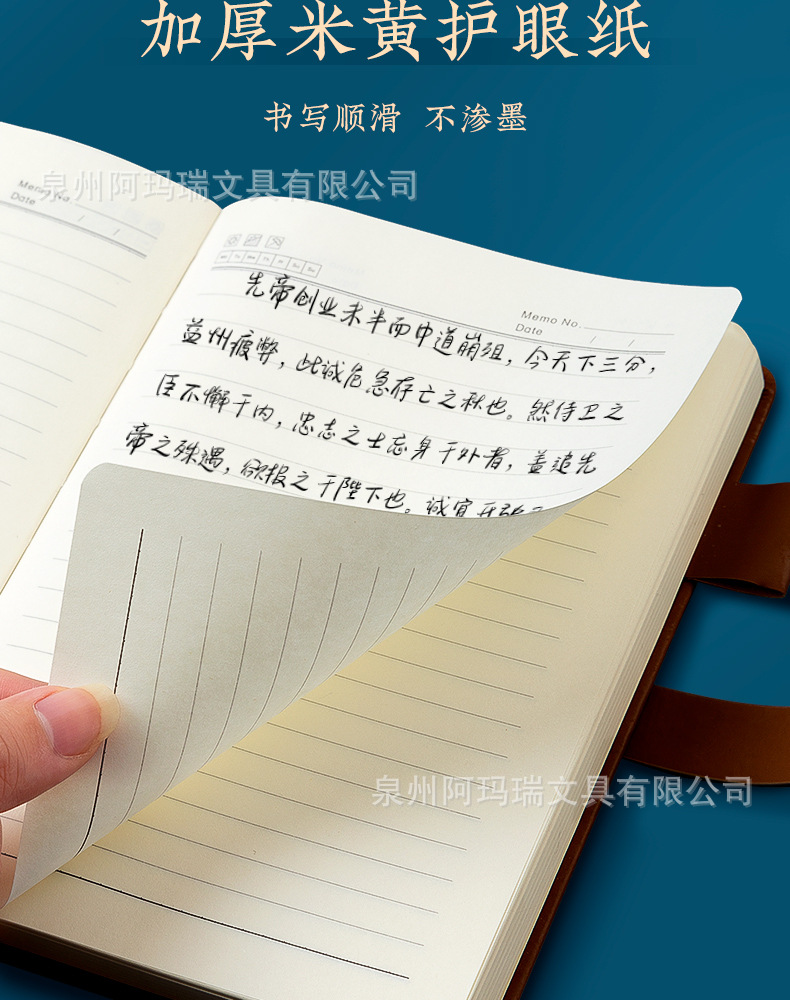 加厚米黄护眼纸
书写顺滑 不渗墨
泉州阿玛瑞文具有限公司
Memo No.
Date / /
Memo No.
Date / /
先帝创业未半而中道崩殂，今天下三分，
益州疲弊，此诚危急存亡之秋也。然侍卫之
臣不懈于内，忠志之士忘身于外者，盖追先
帝之殊遇，欲报之于陛下也。诚宜开张
泉州阿玛瑞文具有限公司